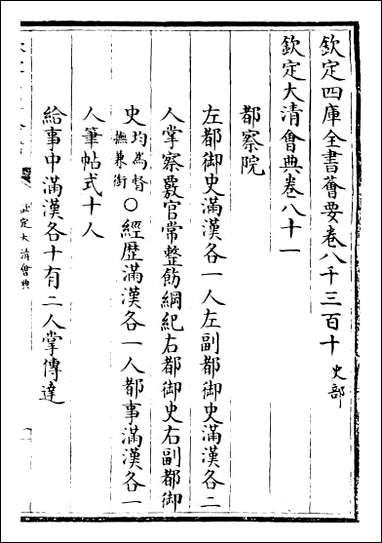 欽定四庫全書薈要卷八千三百十 史部
欽定大清會典卷八十一
都察院
左都御史滿漢各一人左副都御史滿漢各二
人掌察覈官常整飭綱紀右都御史右副都御
史 均為督撫兼銜 ○經歷滿漢各一人都事滿漢各一
人筆帖式十人
給事中滿漢各十有二人掌傳達
欽定大清會典